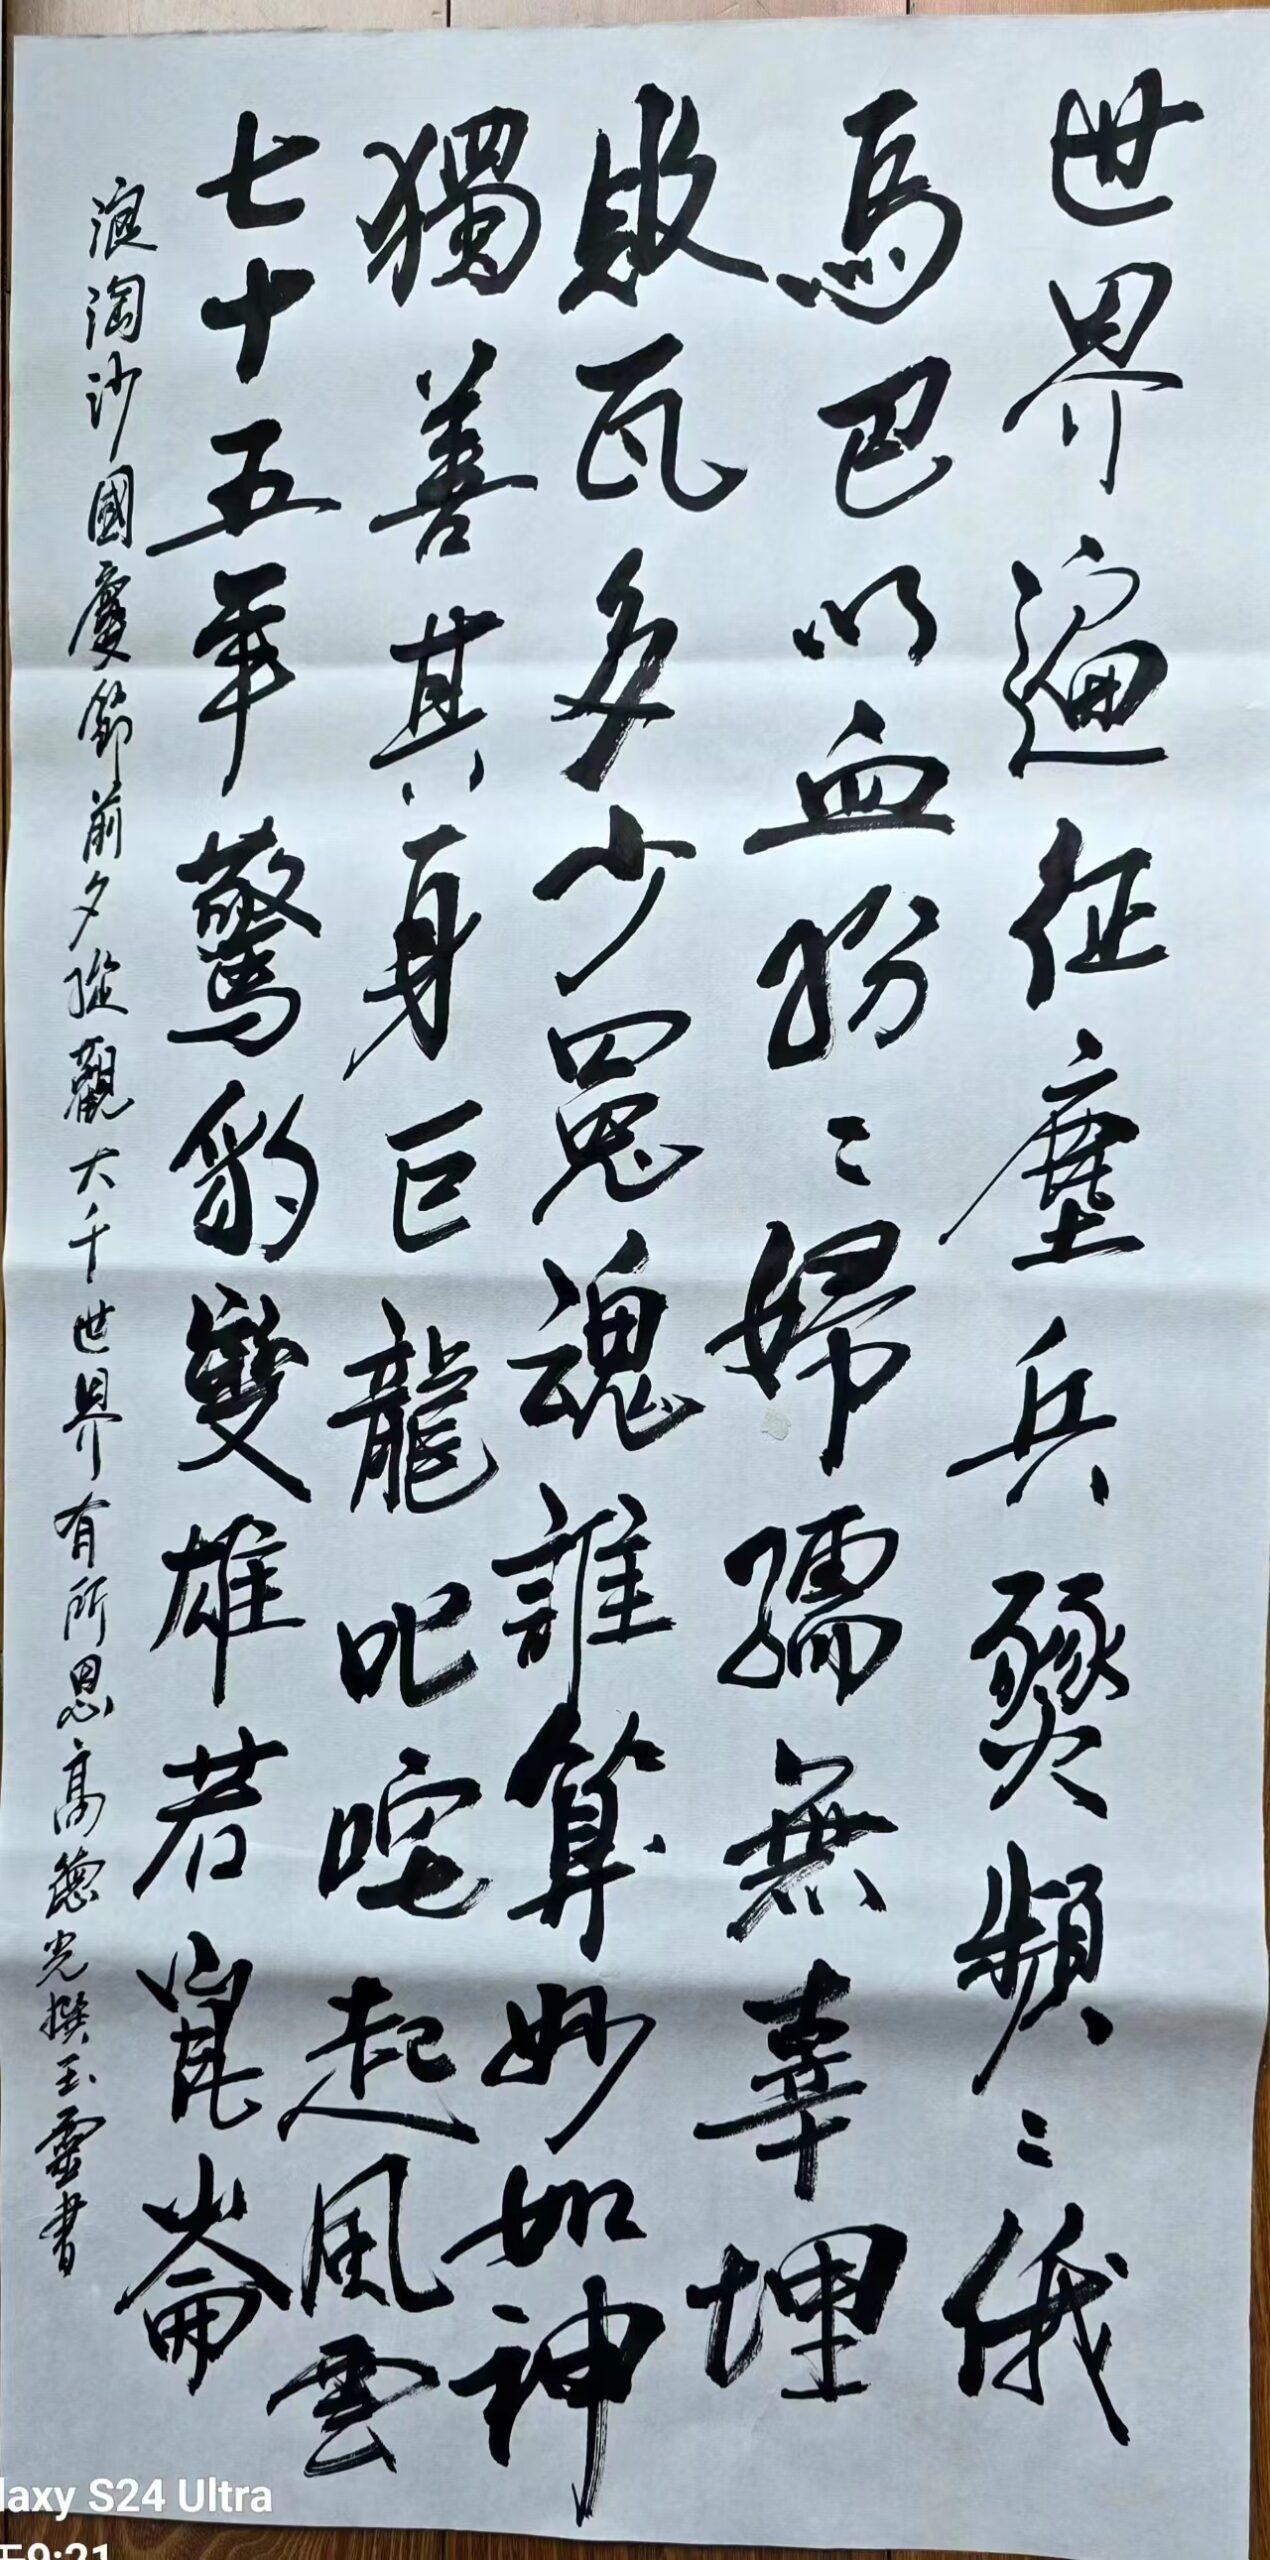 世界遍征塵兵燹頻〻俄
烏巴以血紛〻婦孺無辜埋
敗瓦多少冤魂誰算妙如神
獨善其身巨龍叱咤起風雲
七十五年驚豹變雄若崑崙
浪淘沙國慶節前夕縱觀大千世界有所思高德光撰玉靈書
laxy S24 Ultra
午9:21